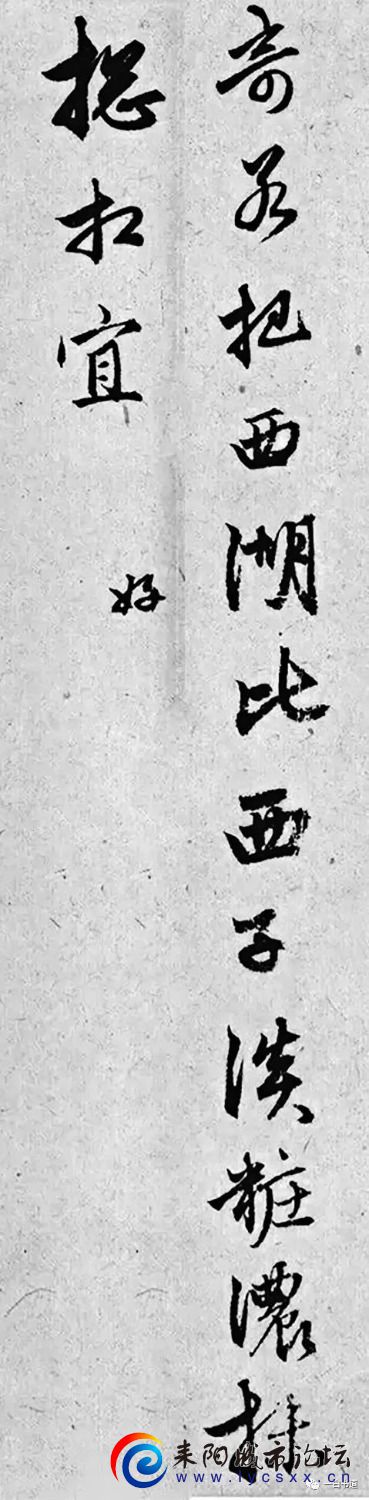 奇若把西湖比西子淡粧濃抹
摠相宜
好
耒阳城市论坛
www.lycsxx.cn